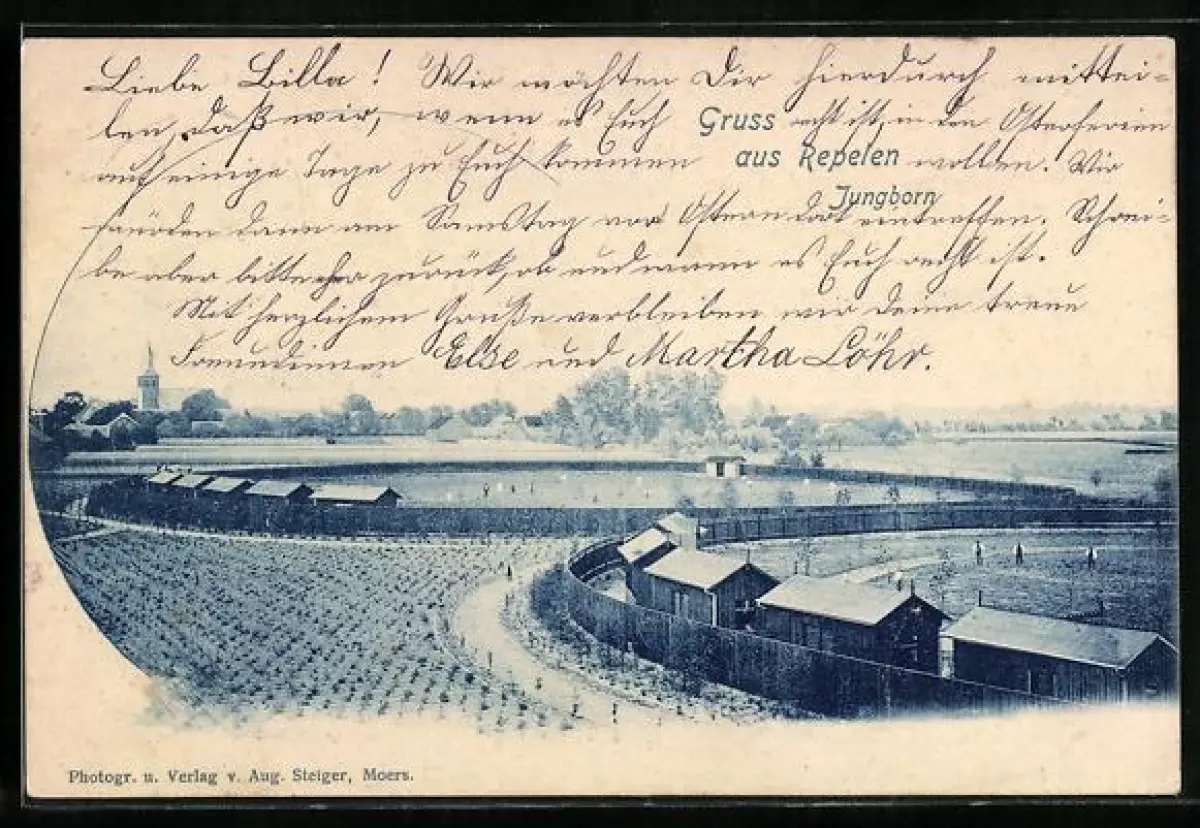 Liebe Billa! Wir möchten Dir hierdurch mittei-
len, daß wir, wenn es Euch recht ist, in den Osterferien
auf einige Tage zu Euch kommen wollen. Wir
würden dann am Samstag vor Ostern dort eintreffen. Schrei-
be aber bitte zurück, ob und wann es Euch recht ist.
Mit herzlichem Gruße verbleiben wir Deine treue
Freundinnen Else und Martha Löhr.
Gruss
aus Repelen
Jungborn
Photogr. u. Verlag v. Aug. Steiger, Moers.